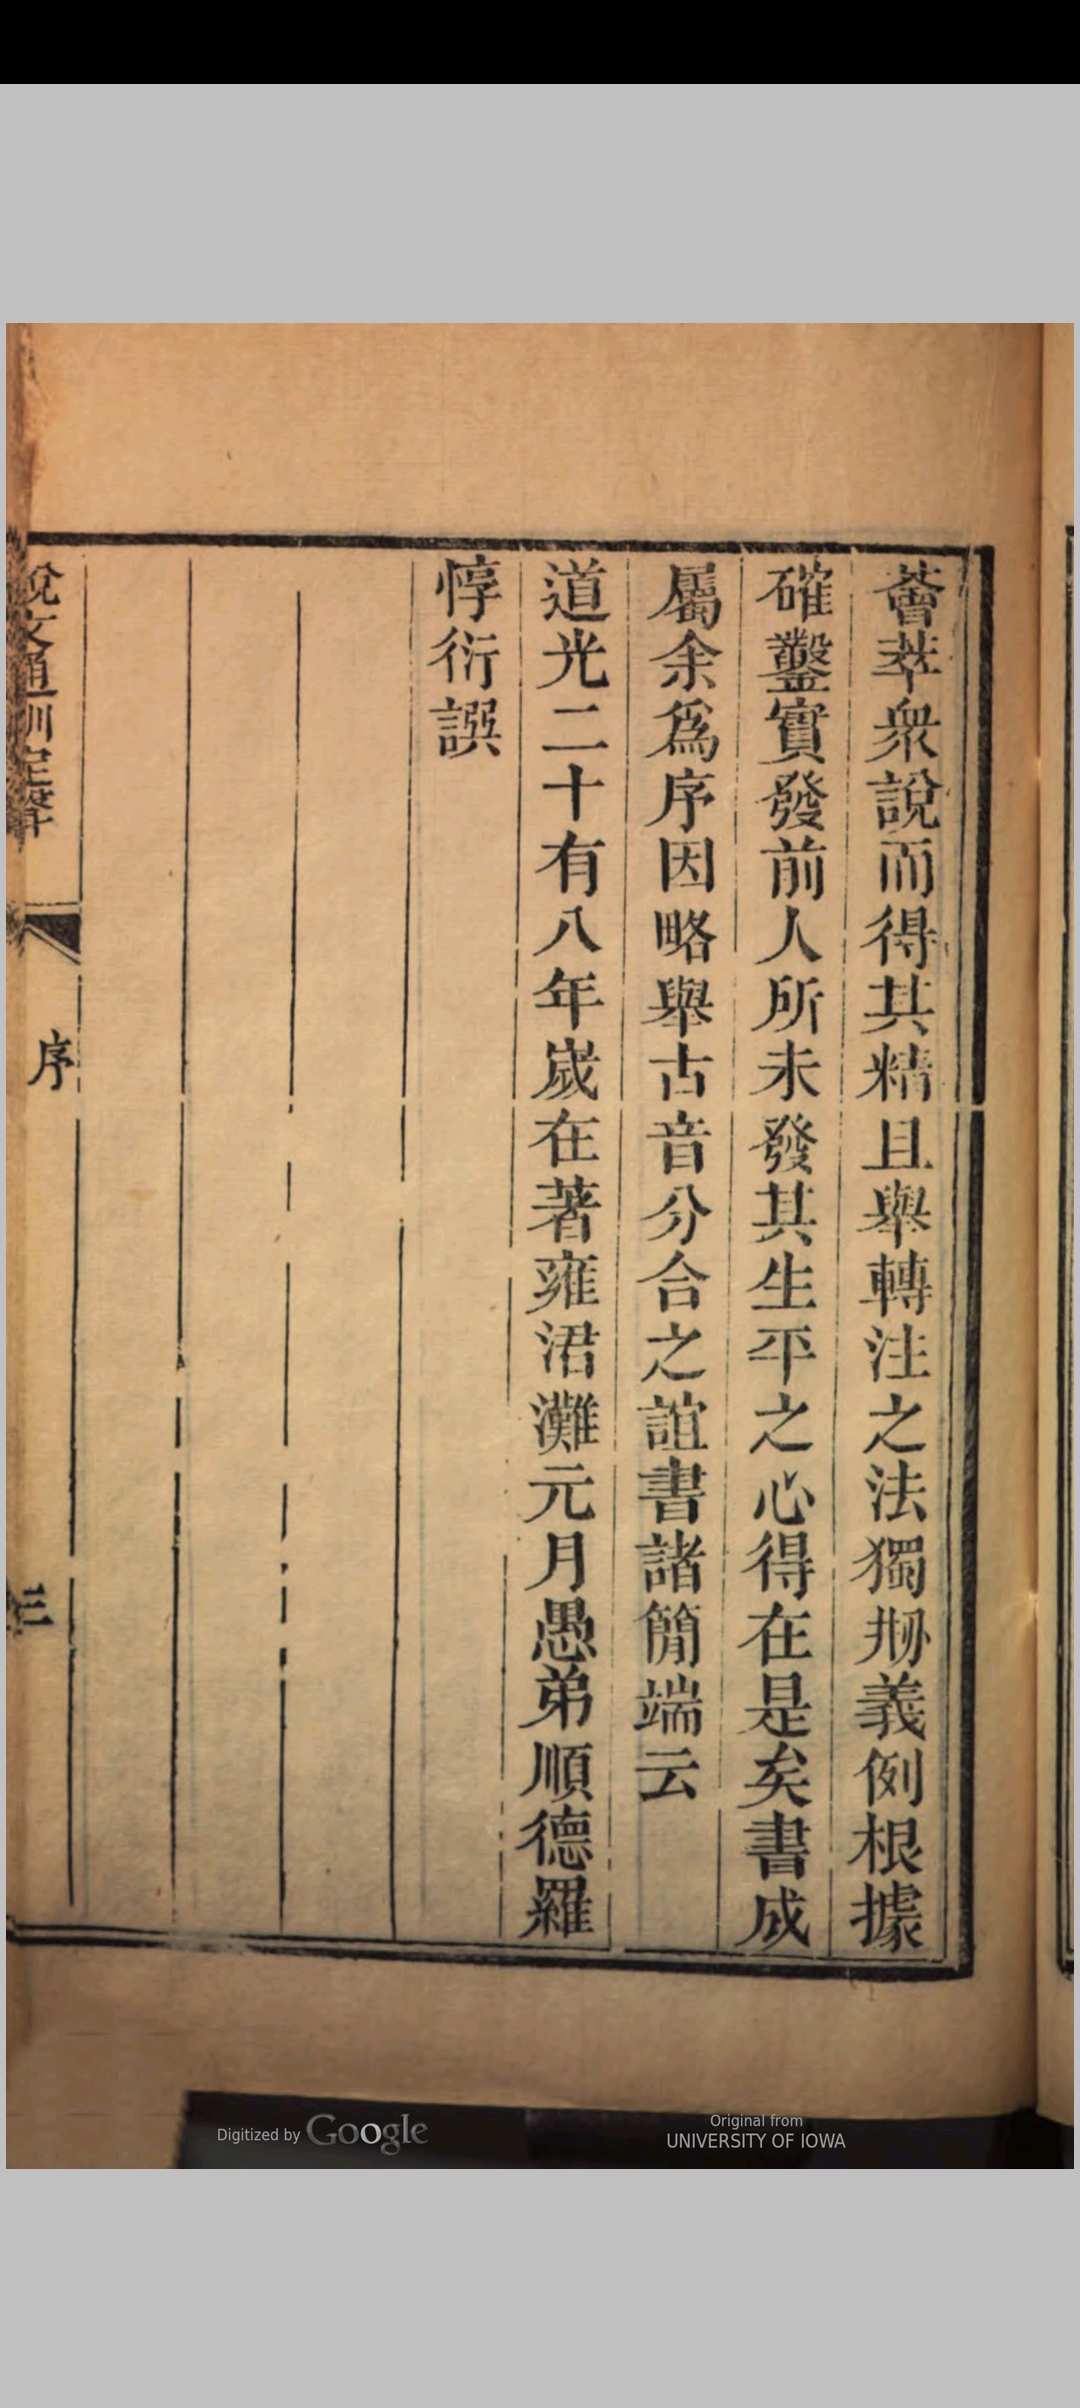 薈萃衆說而得其精且舉轉注之法獨刱義例根據
確鑿實發前人所未發其生平之心得在是矣書成
屬余爲序因略舉古音分合之誼書諸簡端云
道光二十有八年嵗在著雍涒灘元月愚弟順德羅
惇衍譔
說文通訓定聲
序
三
Digitized by Google
Original from
UNIVERSITY OF IOWA